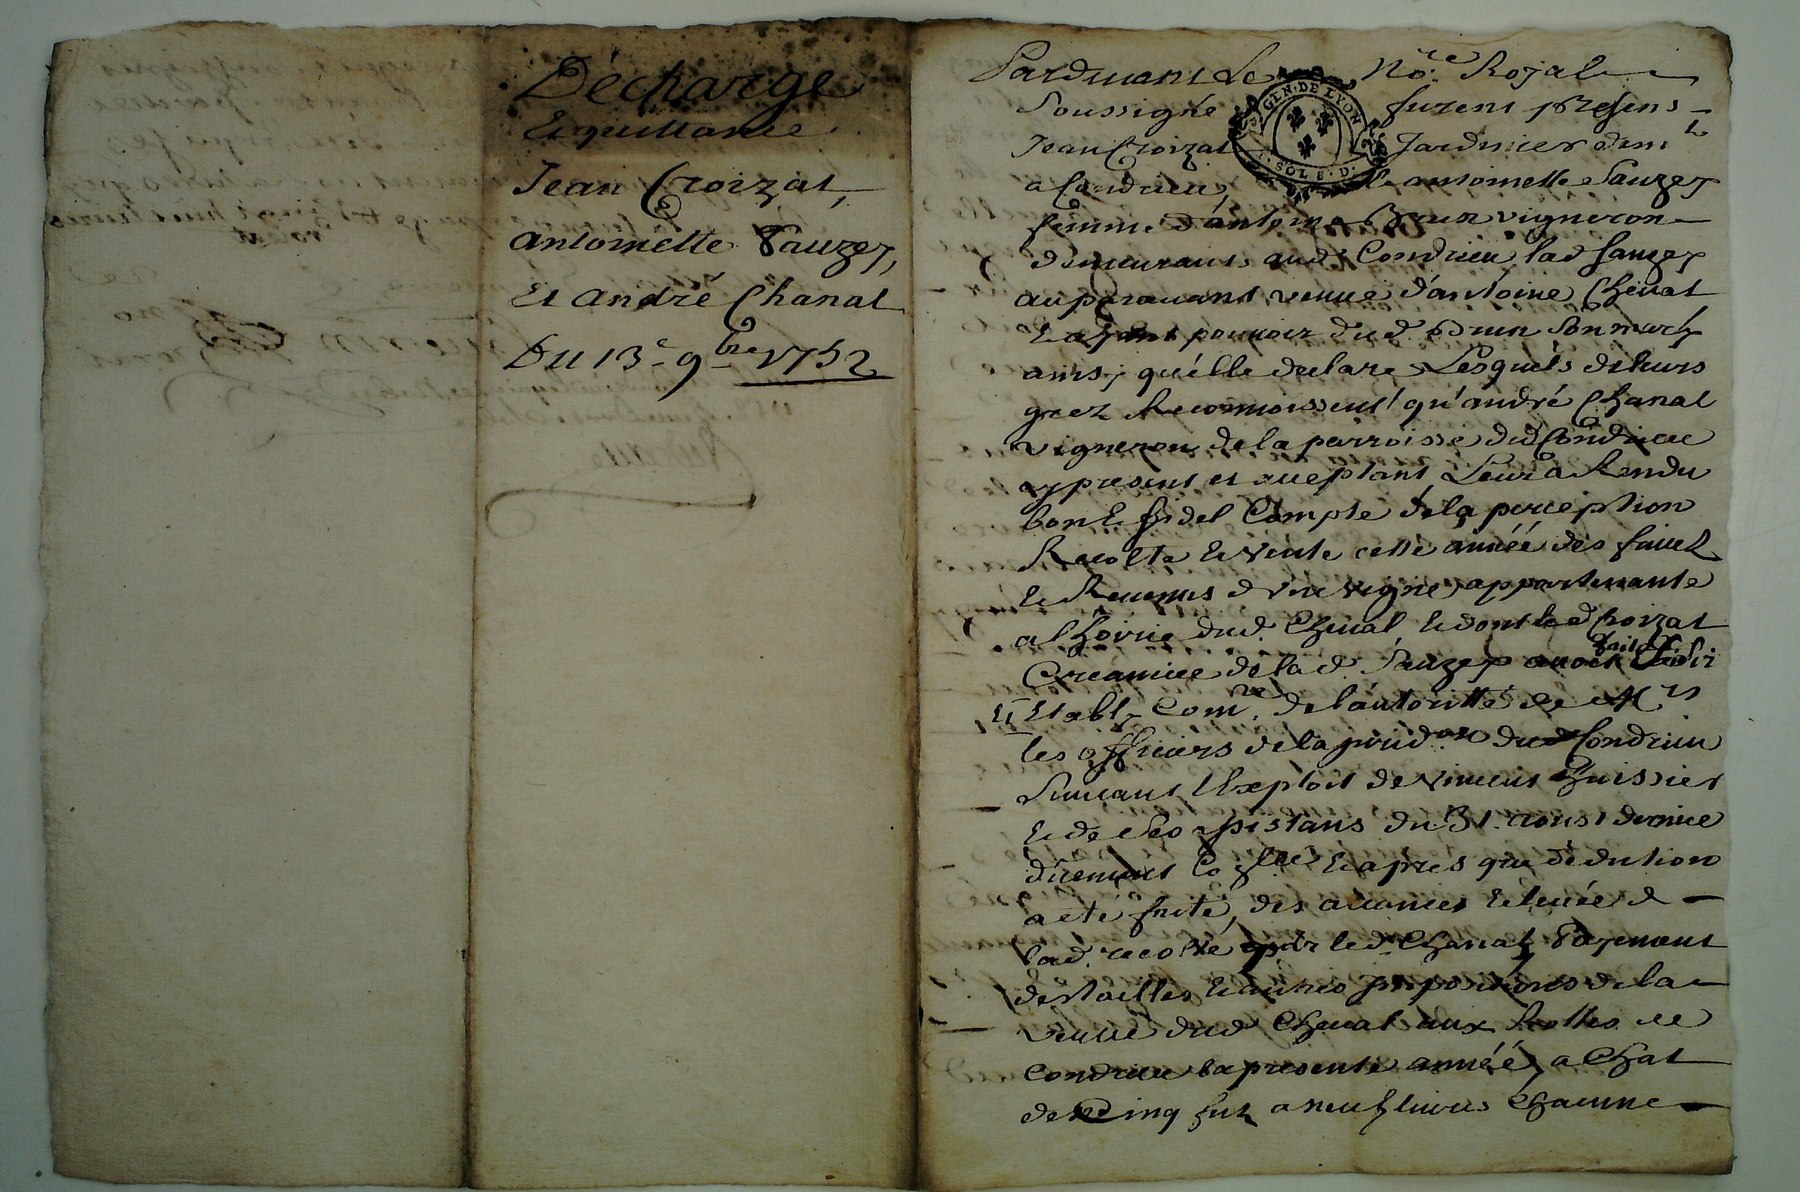 Décharge
Et quittance
Jean Croizat,
antoinette Sauzey,
Et andré Chanal
Du 13e 9bre 1752
Pardevant Le Nore Royal
Soussigné furent présens
Jean Croizat Jardinier demt
a Condrieu, & antoinette Sauzey
femme d'antoine Brun vigneron
demeurants aud Condrieu lad Sauzey
auparavant veuve d'antoine Cheval
Layant pouvoir dud. Brun Son mary
ainsy qu'elle declare Lesquels de leurs
grez Reconnoissent qu'andré Chanal
vigneron de la parroisse dud Condrieu
cy present et acceptant, Leur a Rendu
bon & fidel Compte de la perception
Recolte & vente cette année des fruits
& Revenus d'une vigne appartenante
a l'hoirie dud. Cheval, & dont led Croizat
Creancier de la d. Sauzey avoit fait
Etably Comre de l'autorité de Mrs
les officiers de la jurid.on dud Condrieu
Suivant l'Exploit de vincent huissier
& de Ses assistans du 31. aoust dernier
düement & après que déduction
a eté faite, des avances & levée de
lad. recolte par led. Chanal, Payement
des tailles & autres Impositions de la
veuve dud Cheval aux Rolles de
Condrieu la presente année, achat
de Cinq a neuf livres Chacune
GEN. DE LYON
SOLS. D.